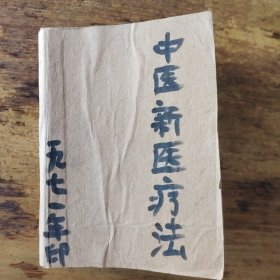 中医新医疗法
一九七一年印